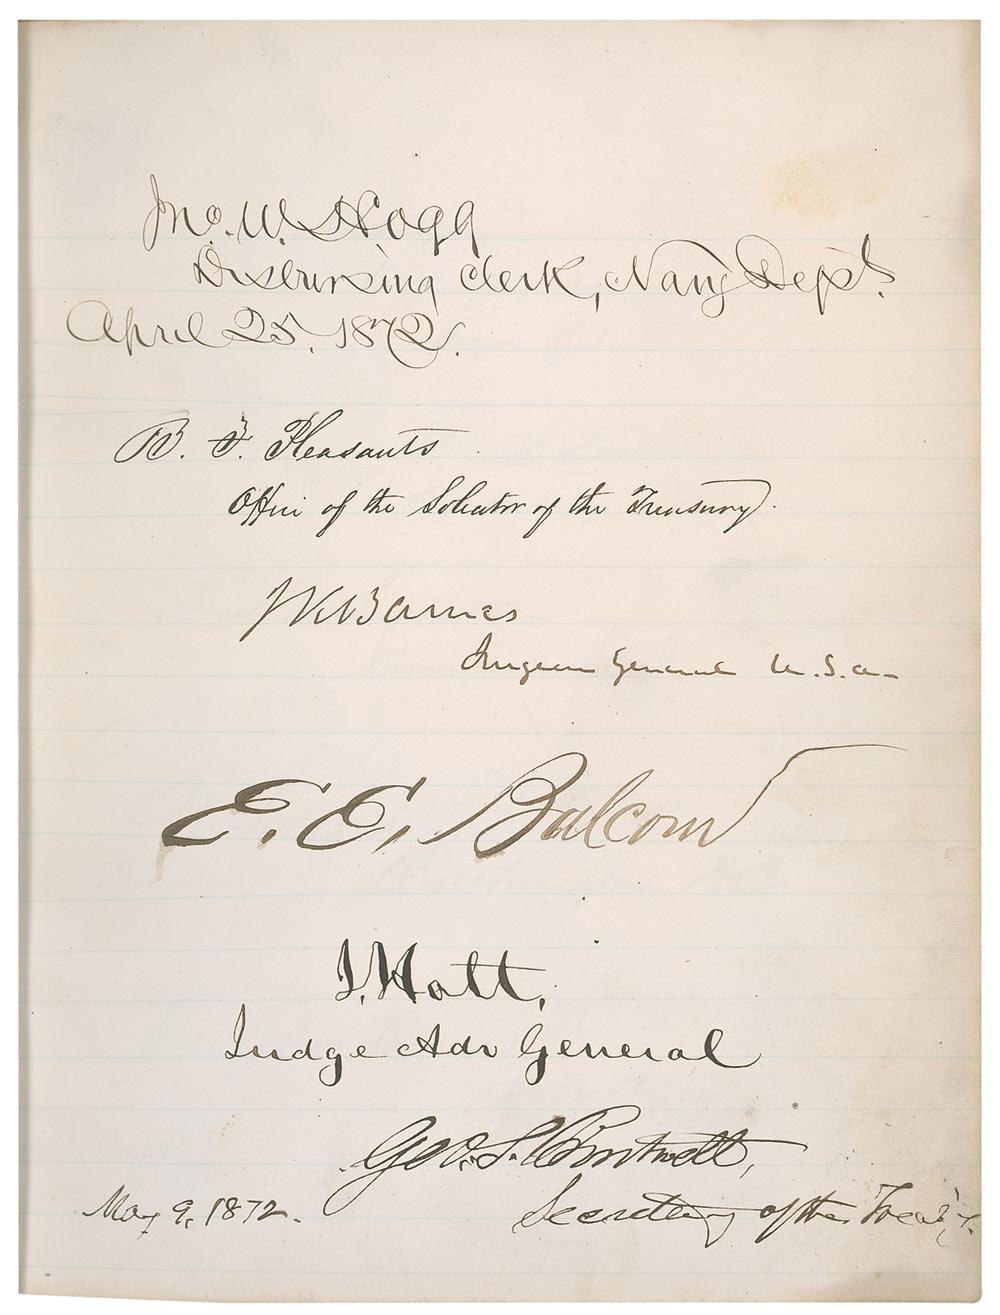 Jno. W. Hogg
Disbursing Clerk, Navy Dept.
April 25, 1872.
B. F. Pleasants
Office of the Solicitor of the Treasury
J K Barnes
Surgeon General U.S.A.
E. E. Balcom
J. Holt,
Judge Adv General
Geo. S. Boutwell,
May 9, 1872.
Secretary of the Treas'y.